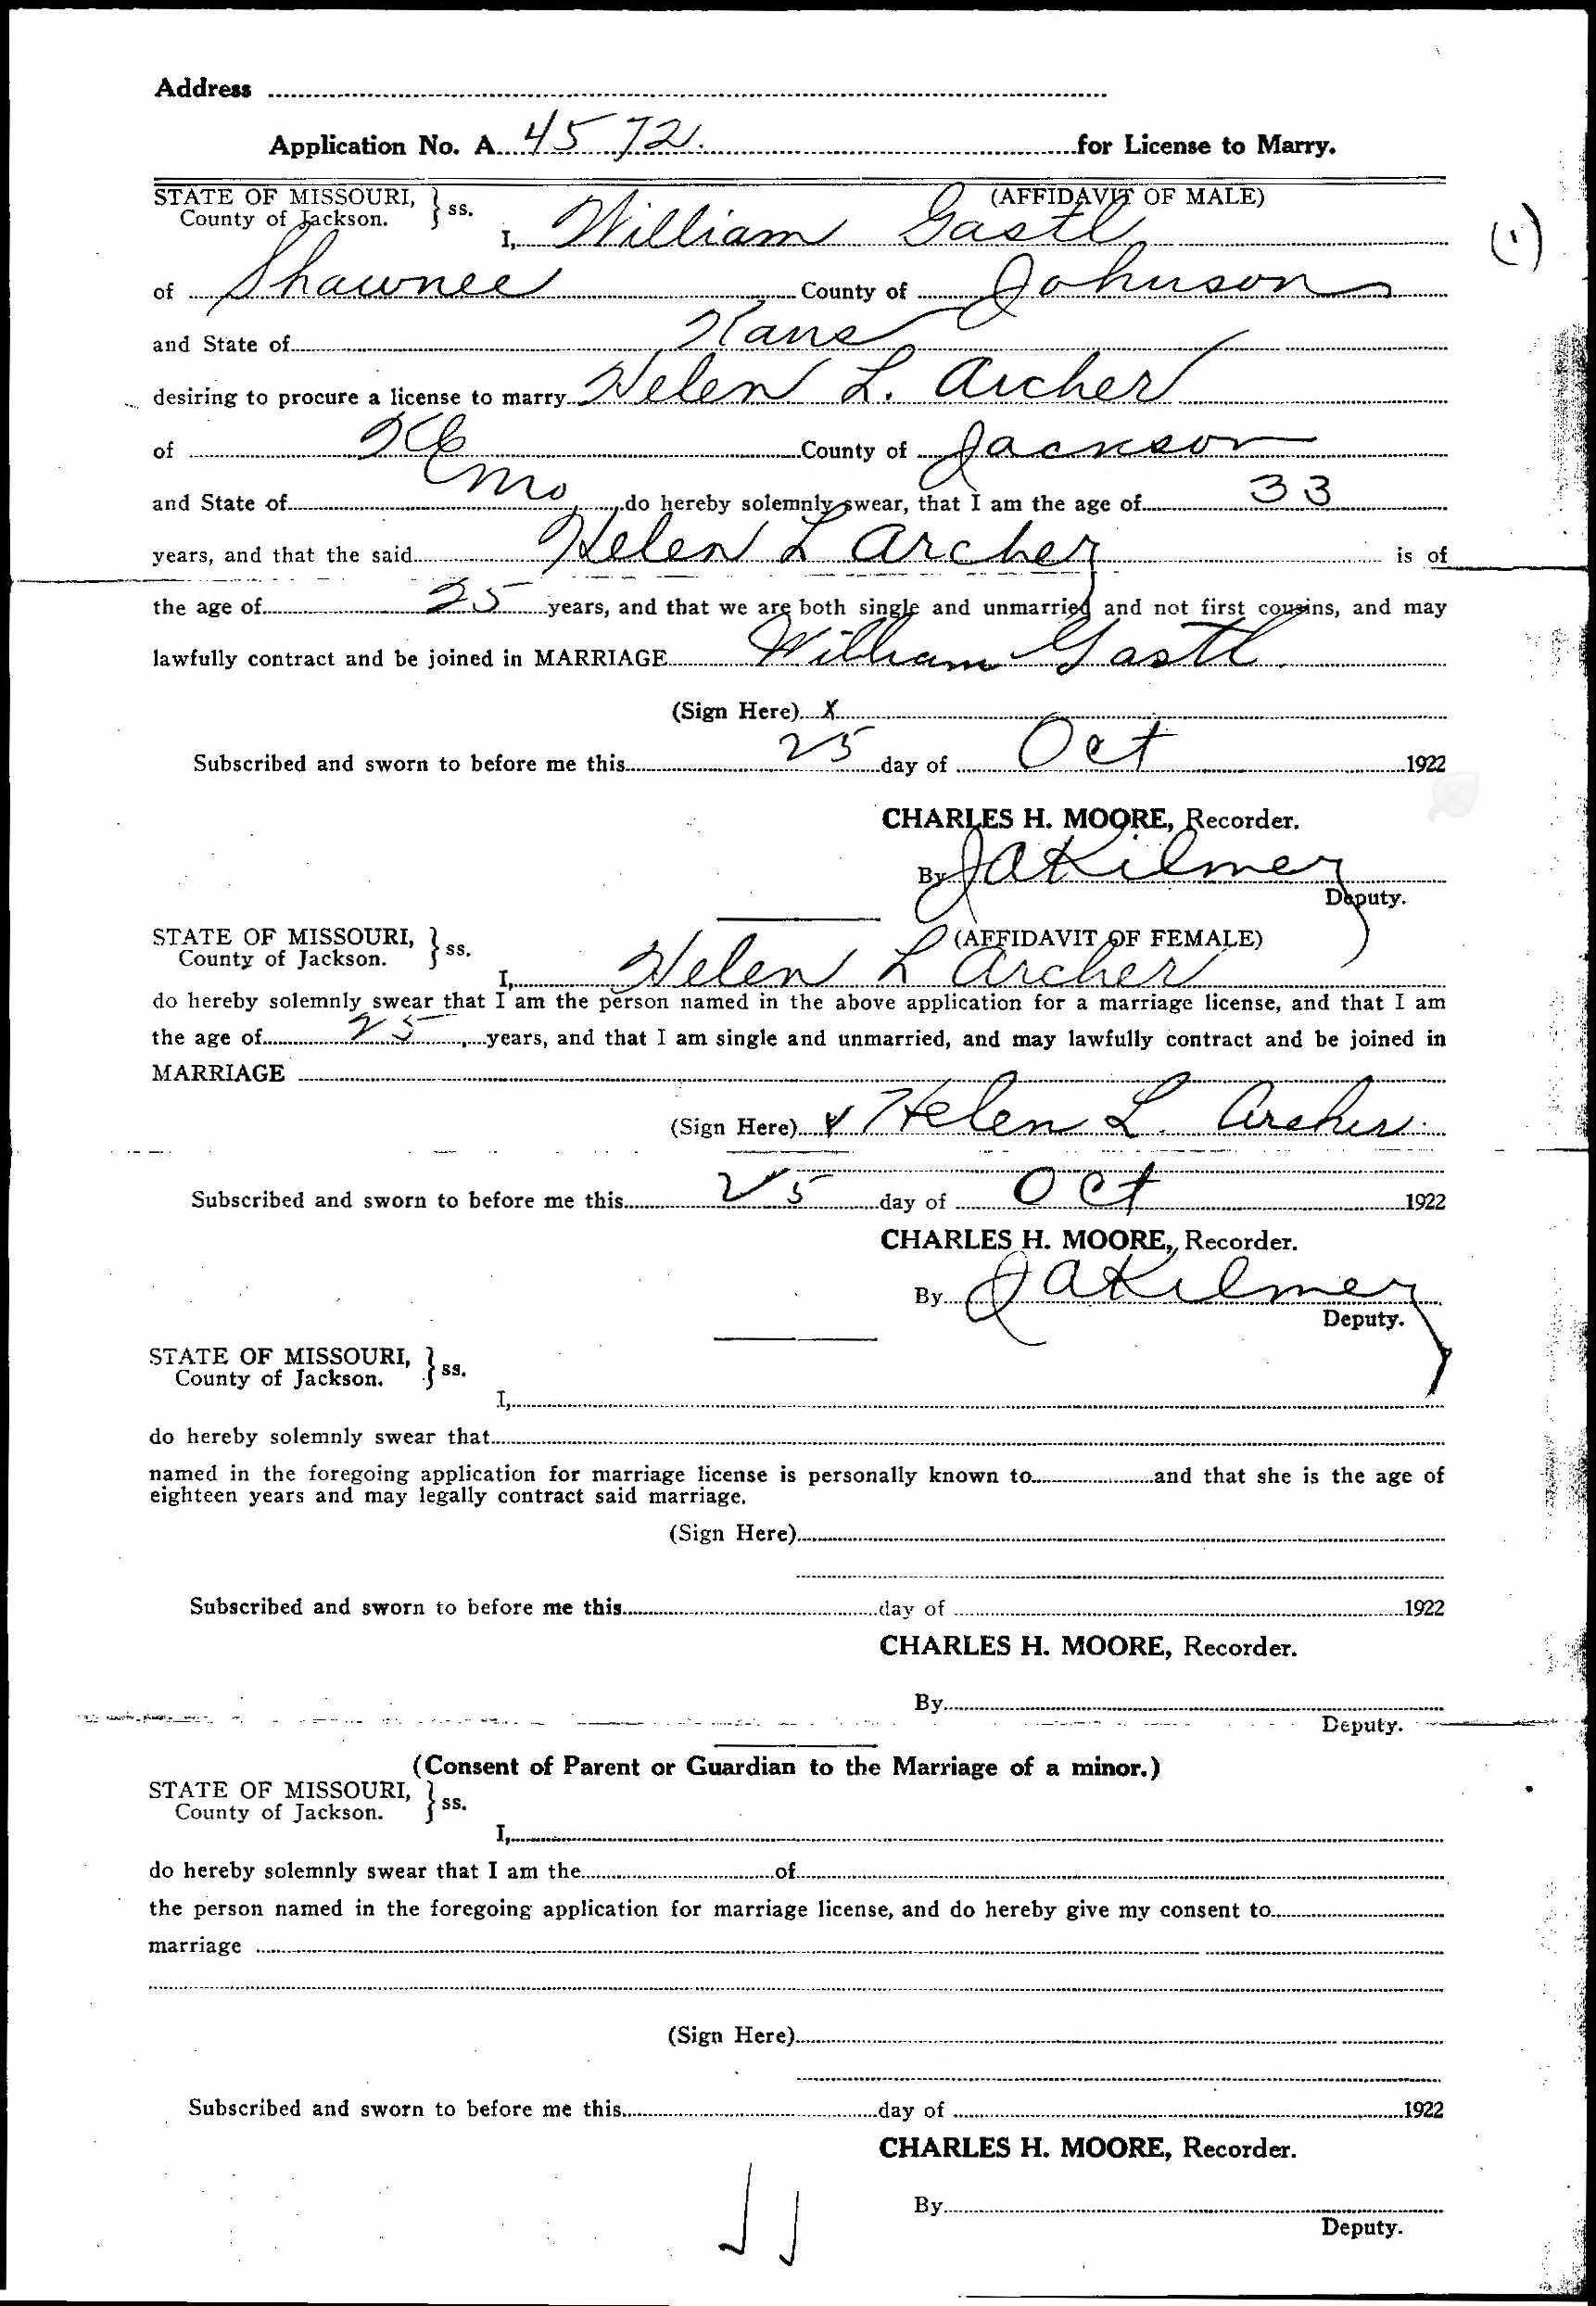 Address
Application No. A 4572. for License to Marry.
STATE OF MISSOURI, } ss. (AFFIDAVIT OF MALE)
County of Jackson.
I, William Gastl (1)
of Shawnee County of Johnson
and State of Kans
desiring to procure a license to marry Helen L. Archer
of KC County of Jackson
and State of Mo do hereby solemnly swear, that I am the age of 33
years, and that the said Helen L Archer is of
the age of 25 years, and that we are both single and unmarried and not first cousins, and may
lawfully contract and be joined in MARRIAGE William Gastl.
(Sign Here) X
Subscribed and sworn to before me this 25 day of Oct 1922
CHARLES H. MOORE, Recorder.
By JAKilmer
Deputy.
STATE OF MISSOURI, } ss. (AFFIDAVIT OF FEMALE)
County of Jackson.
I, Helen L Archer
do hereby solemnly swear that I am the person named in the above application for a marriage license, and that I am
the age of 25 years, and that I am single and unmarried, and may lawfully contract and be joined in
MARRIAGE
(Sign Here) X Helen L. Archer.
Subscribed and sworn to before me this 25 day of Oct 1922
CHARLES H. MOORE, Recorder.
By JAKilmer
Deputy.
STATE OF MISSOURI, } ss.
County of Jackson.
I,
do hereby solemnly swear that
named in the foregoing application for marriage license is personally known to and that she is the age of
eighteen years and may legally contract said marriage.
(Sign Here)
Subscribed and sworn to before me this day of 1922
CHARLES H. MOORE, Recorder.
By
Deputy.
(Consent of Parent or Guardian to the Marriage of a minor.)
STATE OF MISSOURI, } ss.
County of Jackson.
I,
do hereby solemnly swear that I am the of
the person named in the foregoing application for marriage license, and do hereby give my consent to
marriage
(Sign Here)
Subscribed and sworn to before me this day of 1922
CHARLES H. MOORE, Recorder.
By
Deputy.